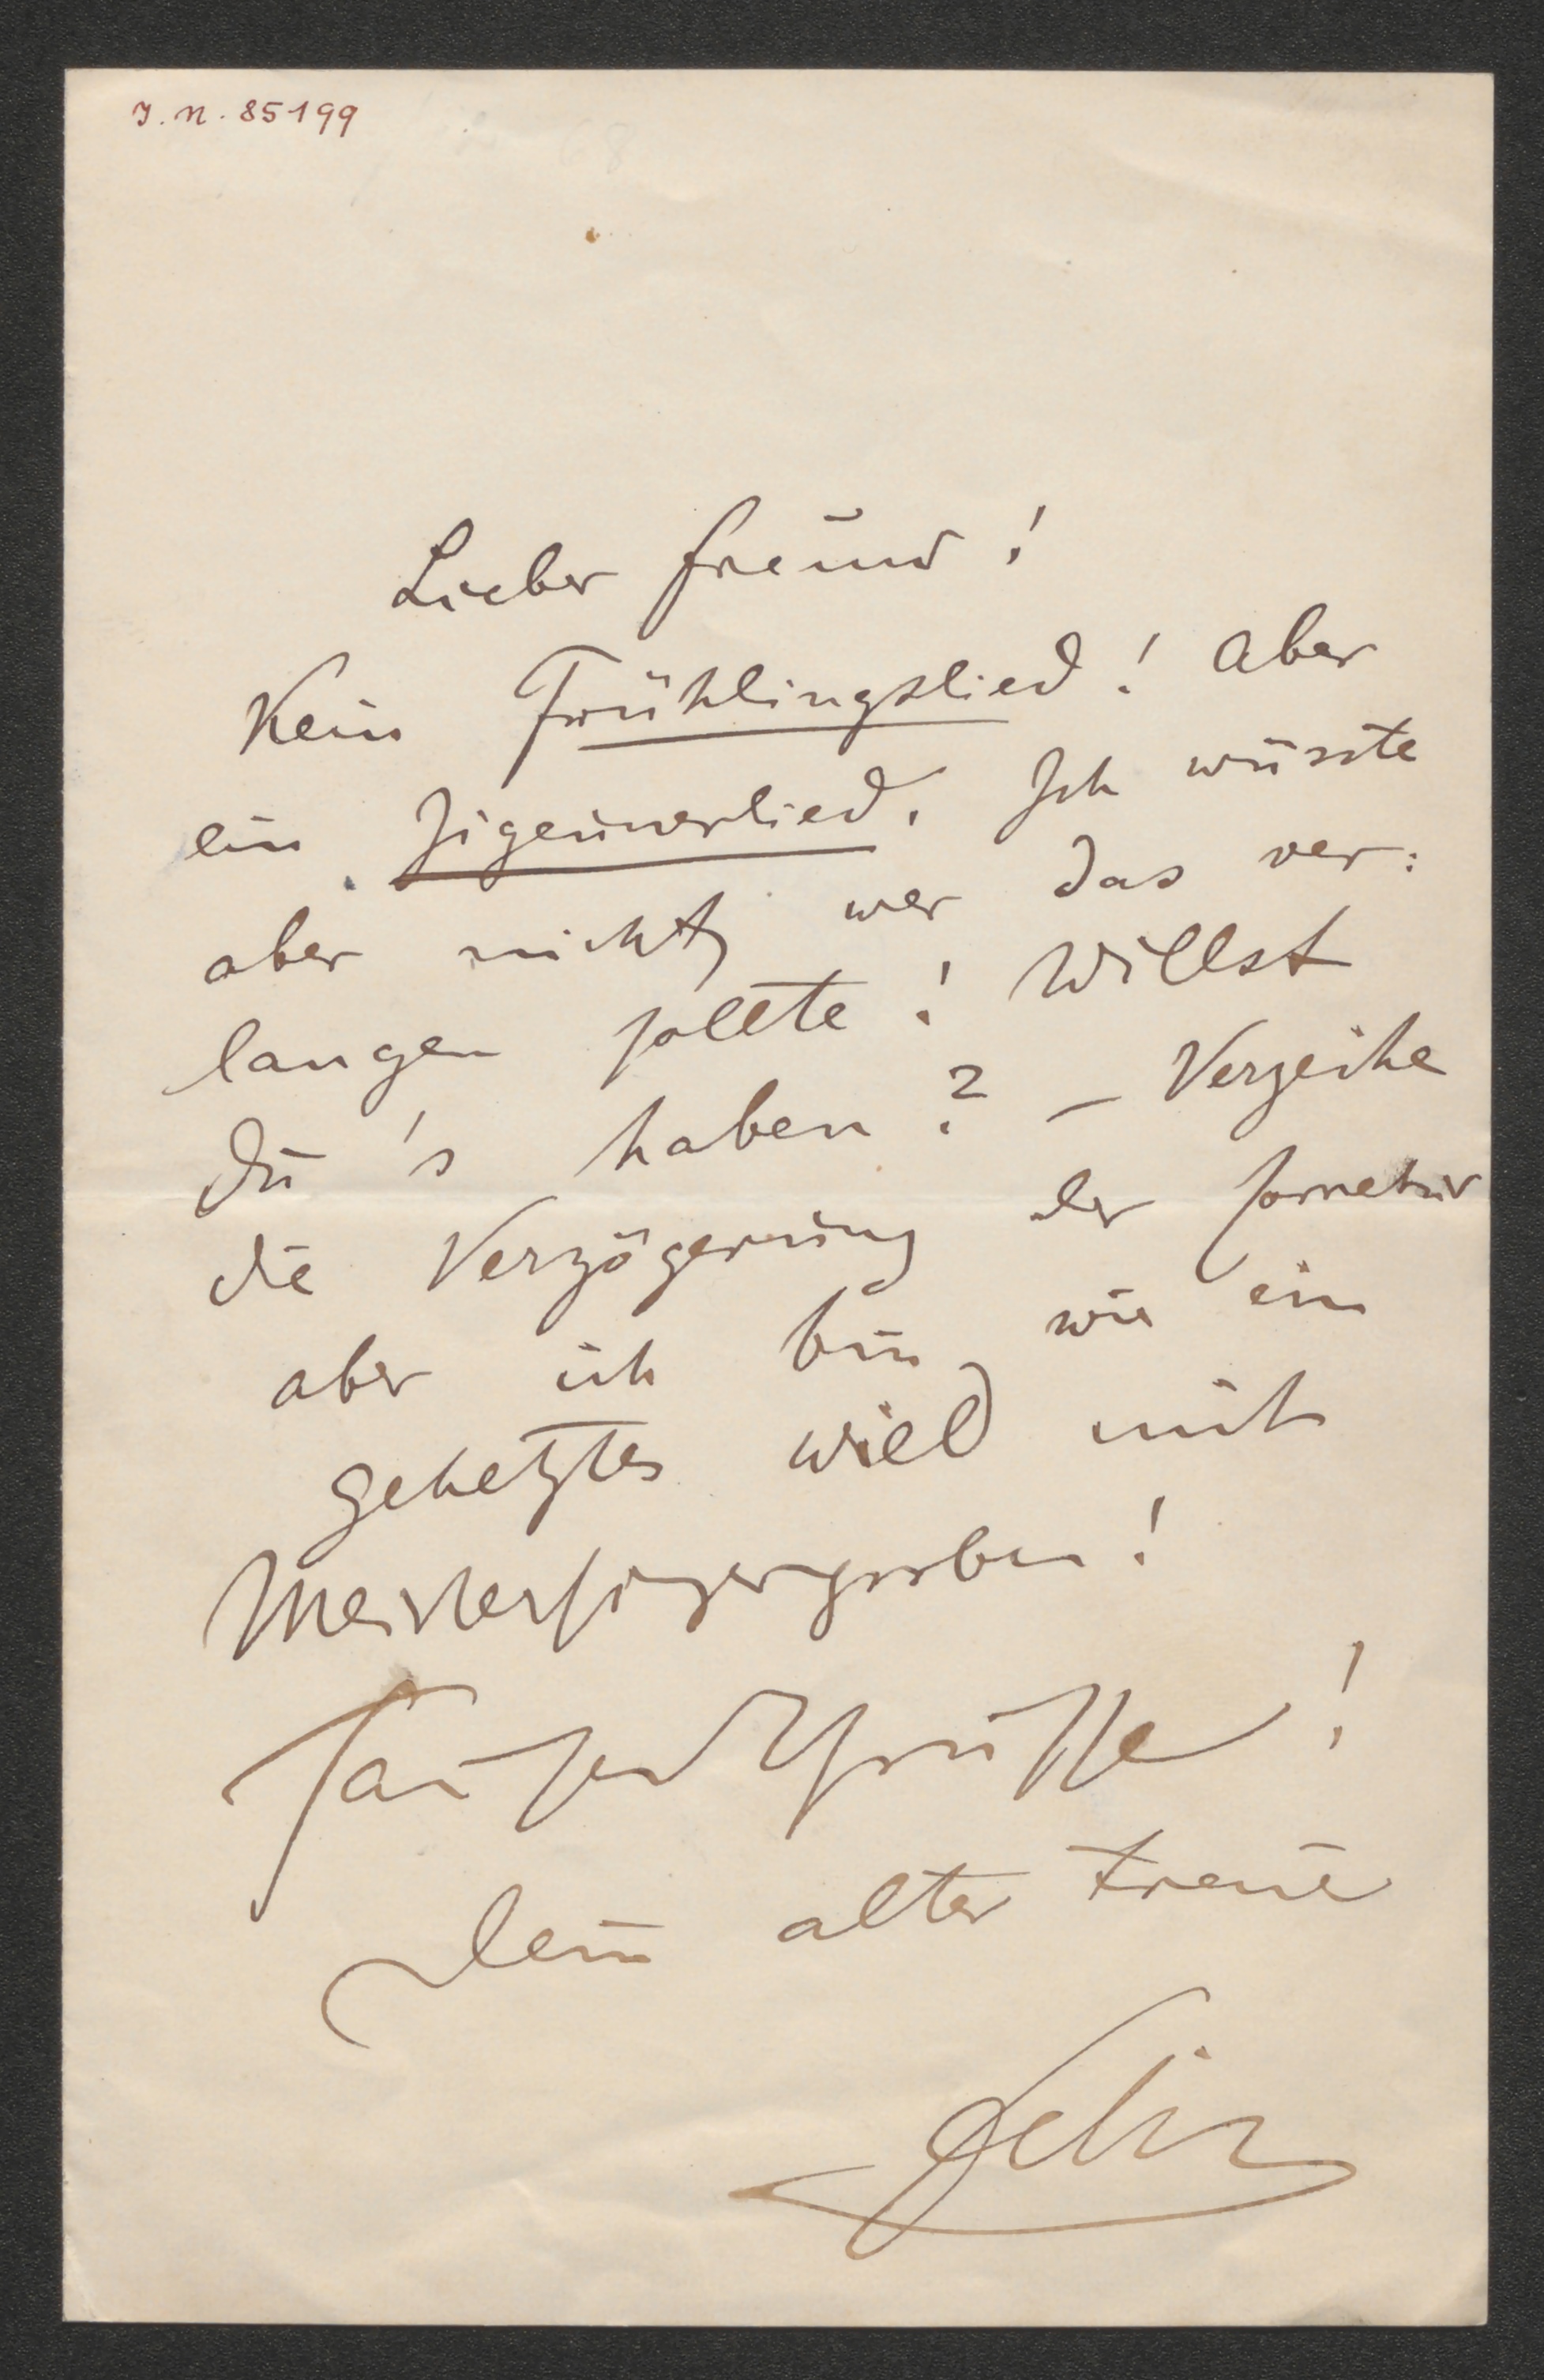 I. N. 85199
Lieber Freund!
Kein Frühlingslied! Aber
ein Zigeunerlied. Ich wüsste
aber nicht, wer das ver:
langen sollte! Willst
Du 's haben? – Verzeihe
die Verzögerung der Correctur
aber ich bin wie ein
gehetztes Wild mit
Meistersingerproben!
Tausend Grüsse!
Dein alter treuer
Felix